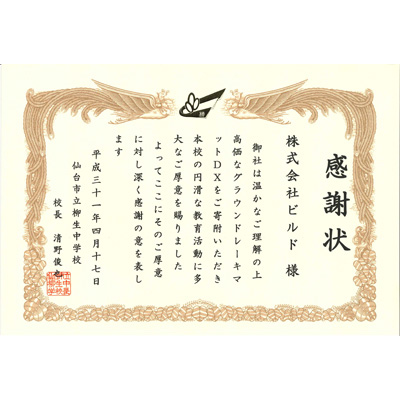 感謝状
株式会社ビルド 様
御社は温かなご理解の上
高価なグラウンドレーキマ
ットDXをご寄附いただき
本校の円滑な教育活動に多
大なご厚意を賜りました
よってここにそのご厚意
に対し深く感謝の意を表し
ます
平成三十一年四月十七日
仙台市立柳生中学校
校長 清野俊也